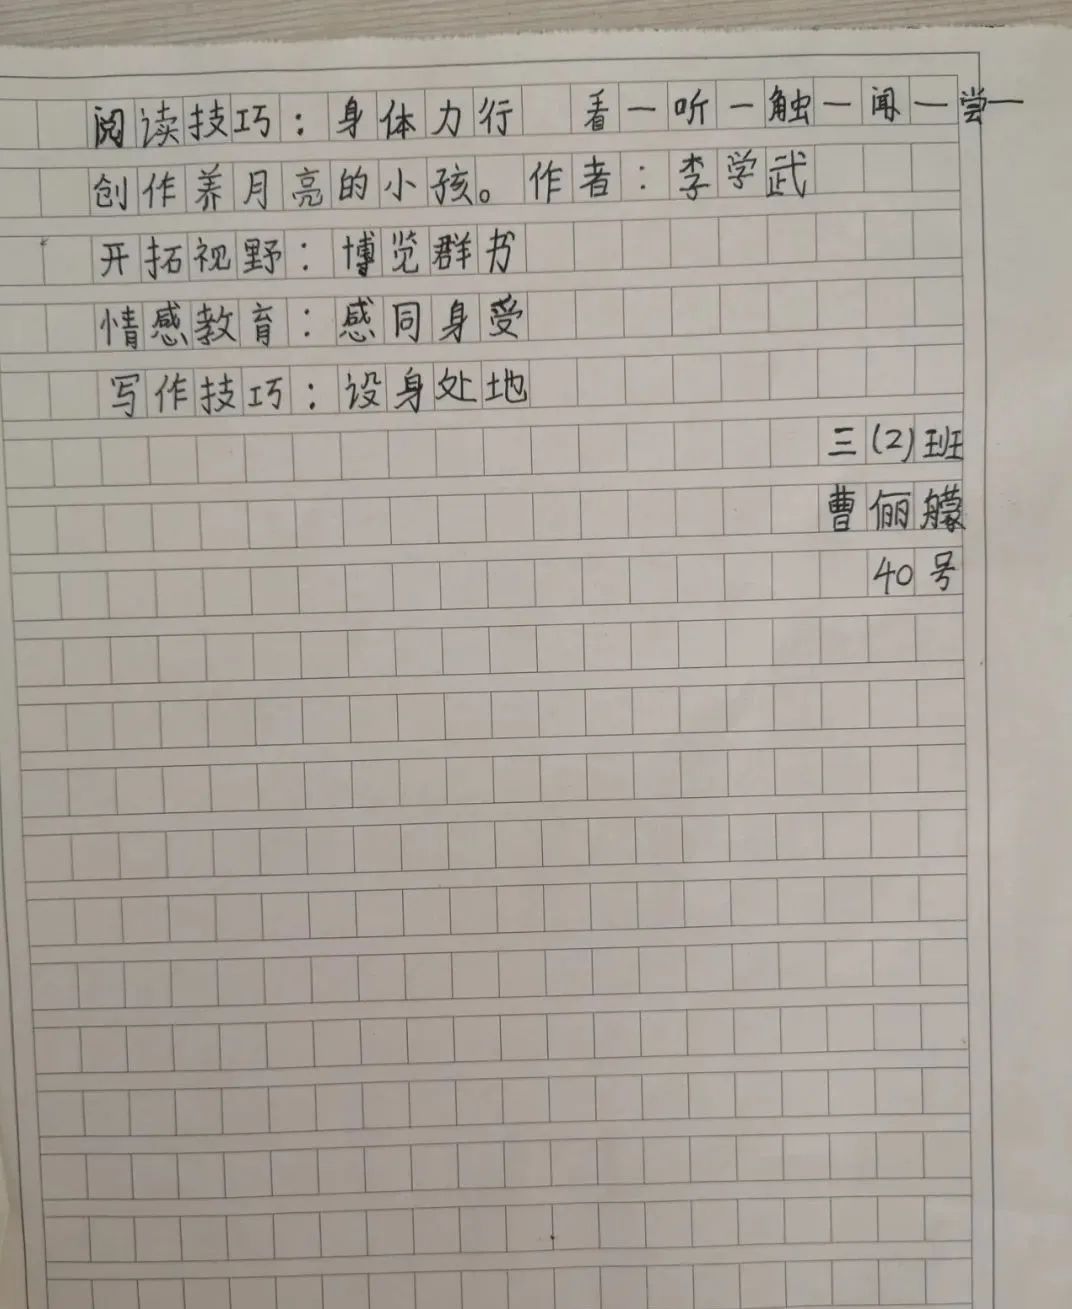 阅读技巧：身体力行 看一听一触一闻一尝一
创作养月亮的小孩。作者：李学武
开拓视野：博览群书
情感教育：感同身受
写作技巧：设身处地
三(2)班
曹俪艨
40号